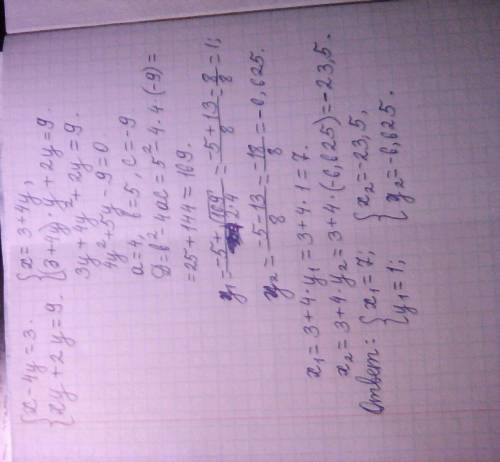 {x-4y=3. {x=3+4y,
{xy+2y=9. {(3+4y)·y+2y=9.
3y+4y²+2y=9.
4y²+5y-9=0.
a=4, b=5, c=-9.
D=b²-4ac=5²-4·4·(-9)=
=25+144=169.
y₁=(-5+√169)/(2·4)=(-5+13)/8=8/8=1;
y₂=(-5-13)/8=-18/8=-6,625.
x₁=3+4·y₁=3+4·1=7.
x₂=3+4·y₂=3+4·(-6,625)=-23,5.
Ответ: {x₁=7; {x₂=-23,5,
{y₁=1; {y₂=-6,625.